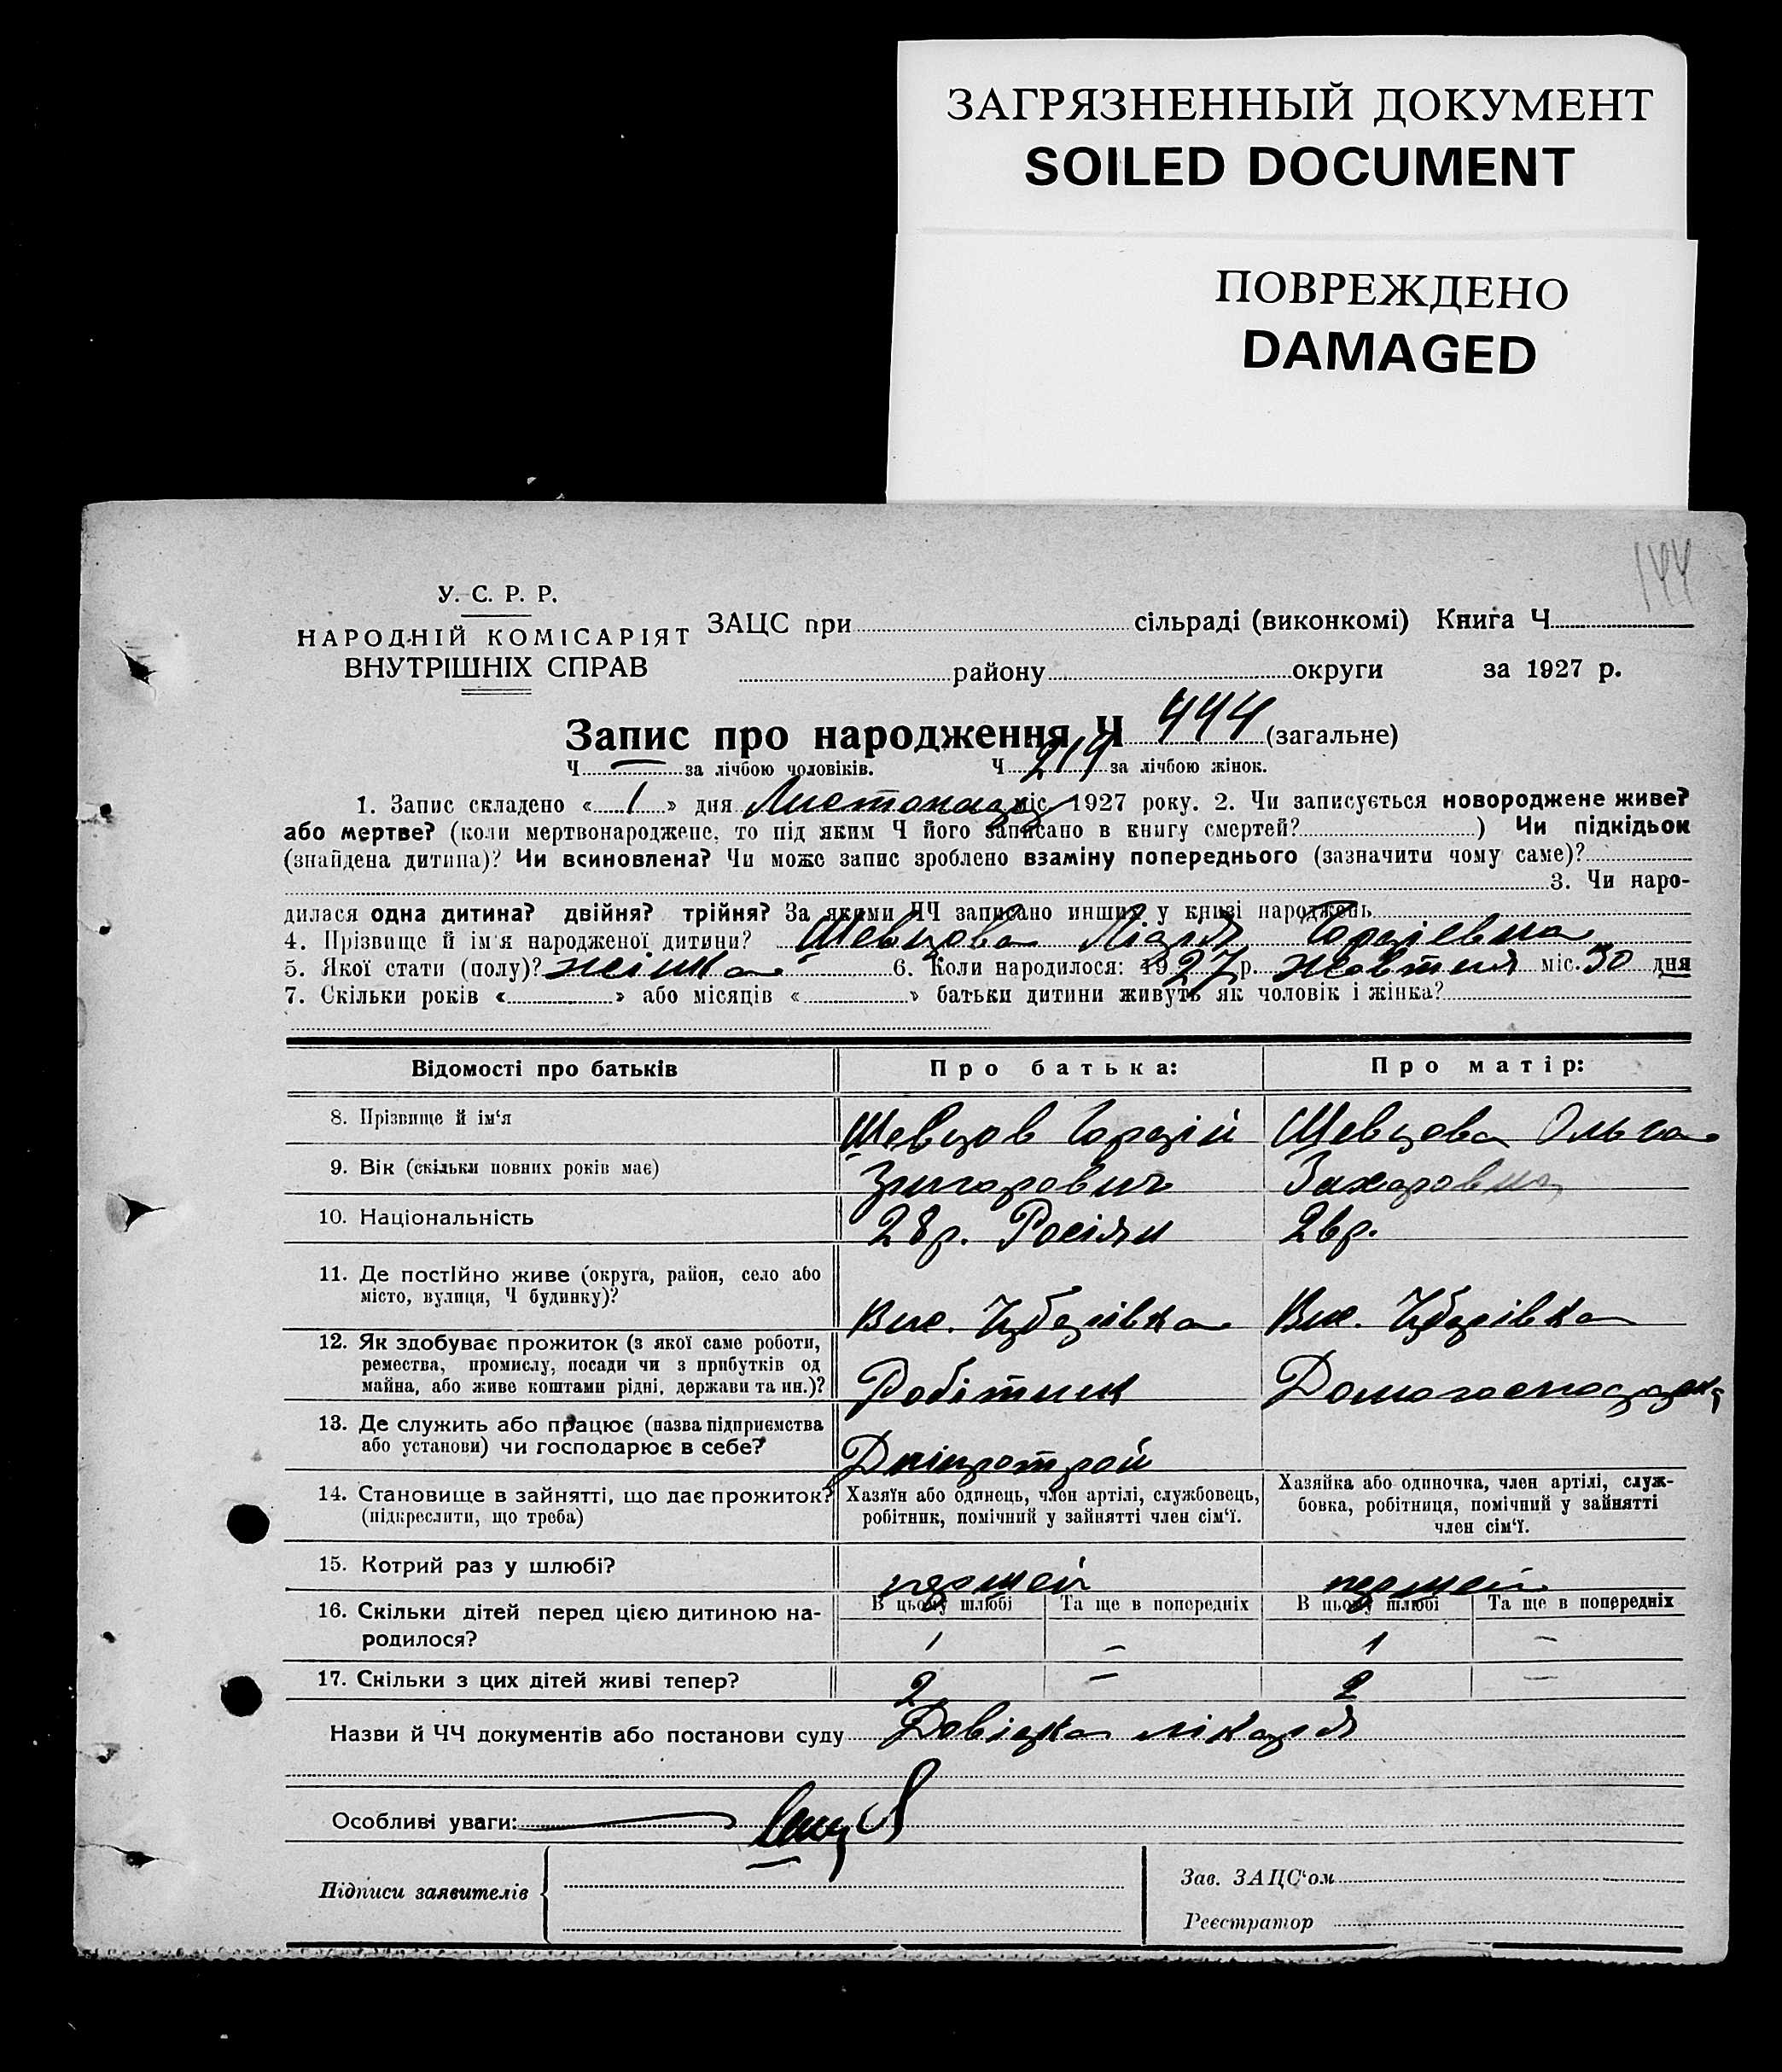 ЗАГРЯЗНЕННЫЙ ДОКУМЕНТ
SOILED DOCUMENT
ПОВРЕЖДЕНО
DAMAGED
144
У. С. Р. Р.
НАРОДНІЙ КОМІСАРІЯТ
ВНУТРІШНІХ СПРАВ
ЗАЦС при сільраді (виконкомі) Книга Ч
району округи за 1927 р.
Запис про народження Ч 444 (загальне)
Ч — за лічбою чоловіків. Ч 219 за лічбою жінок.
1. Запис складено «1» дня Листопаду міс. 1927 року. 2. Чи записується новороджене живе?
або мертве? (коли мертвонароджене, то під яким Ч його записано в книгу смертей? ) Чи підкідьок
(знайдена дитина)? Чи всиновлена? Чи може запис зроблено взаміну попереднього (зазначити чому саме)?
3. Чи наро-
дилася одна дитина? двійня? трійня? За якими ЧЧ записано инших у книзі народжень
4. Прізвище й ім'я народженої дитини? Шевцова Лідія Гордіевна
5. Якої стати (полу)? жінка 6. Коли народилося: 1927 р. Жовтня міс. 30 дня
7. Скільки років « » або місяців « » батьки дитини живуть як чоловік і жінка?
Відомості про батьків Про батька: Про матір:
8. Прізвище й ім'я Шевцов Гордій Шевцова Ольга
9. Вік (скільки повних років має) Григорович Захаровна
10. Національність 28 р. Росіян 26 р.
11. Де постійно живе (округа, район, село або
місто, вулиця, Ч будинку)? Вик.
Вик.
12. Як здобуває прожиток (з якої саме роботи,
ремества, промислу, посади чи з прибутків од
майна, або живе коштами рідні, держави та ин.)? Робітник Домогосподарка
13. Де служить або працює (назва підприємства
або установи) чи господарює в себе? Дніпрострой
14. Становище в зайнятті, що дає прожиток?
(підкреслити, що треба)
Хазяїн або одинець, член артілі, службовець,
робітник, помічний у зайнятті член сім'ї.
Хазяйка або одиночка, член артілі, служ-
бовка, робітниця, помічний у зайнятті
член сім'ї.
15. Котрий раз у шлюбі? перший перший
16. Скільки дітей перед цією дитиною на-
родилося?
В цьому шлюбі Та ще в попередніх В цьому шлюбі Та ще в попередніх
1 — 1 —
17. Скільки з цих дітей живі тепер? 2 — 2 —
Назви й ЧЧ документів або постанови суду Довідка лікаря
Особливі уваги:
Підписи заявителів
Зав. ЗАЦС'ом
Реєстратор